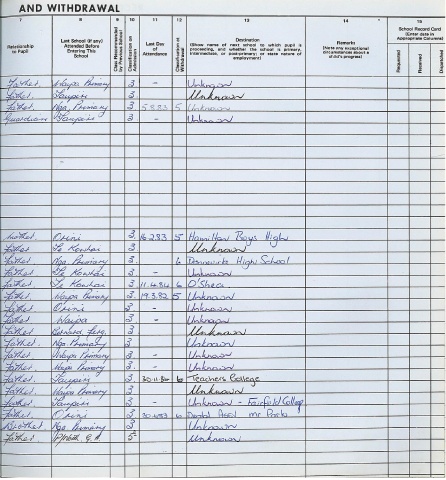 AND WITHDRAWAL
7 8 9 10 11 12 13 14 15
Relationship to Pupil
Last School (if any) Attended Before Entering This School
Class Recommended by Previous School
Classification on Admission
Last Day of Attendance
Classification at Withdrawal
Destination
(Show name of next school to which pupil is proceeding, and whether the school is primary, intermediate, or post-primary) or state nature of employment)
Remarks
(Note any exceptional circumstances about a child's progress)
School Record Card
(Enter date in Appropriate Columns)
Requested Received Dispatched
Father. Waipa Primary 3 - Unknown
Father. Taupiri 3 - Unknown
Father. Nga. Primary 3 5.8.83 5 Unknown
Guardian Taupiri 3 - Unknown
Mother. Orini 3. 16.2.83 5 Hamilton Boys High
Father Te Kowhai 3 Unknown
Father Nga. Primary 3 6 High School
Father Te Kowhai 3 - Unknown
Father Te Kowhai 3 11.4.84 6 O'Shea.
Father. Waipa Primary 3 19.3.82 5 Unknown
Father Orini 3 - Unknown
Father Waipa 3 - Unknown
Father 3 Unknown
Father. Nga. Primary 3 Unknown
Father. Waipa Primary 3 - Unknown
Father. Waipa Primary 3 - Unknown
Father. Taupiri 3 30.11.84 6 Teachers College
Father. Waipa Primary 3 Unknown
Father Taupiri 3 - Unknown - Fairfield College
Father. Orini 3 6 Dental
Brother. Nga Primary 3 Unknown
Father 5 Unknown